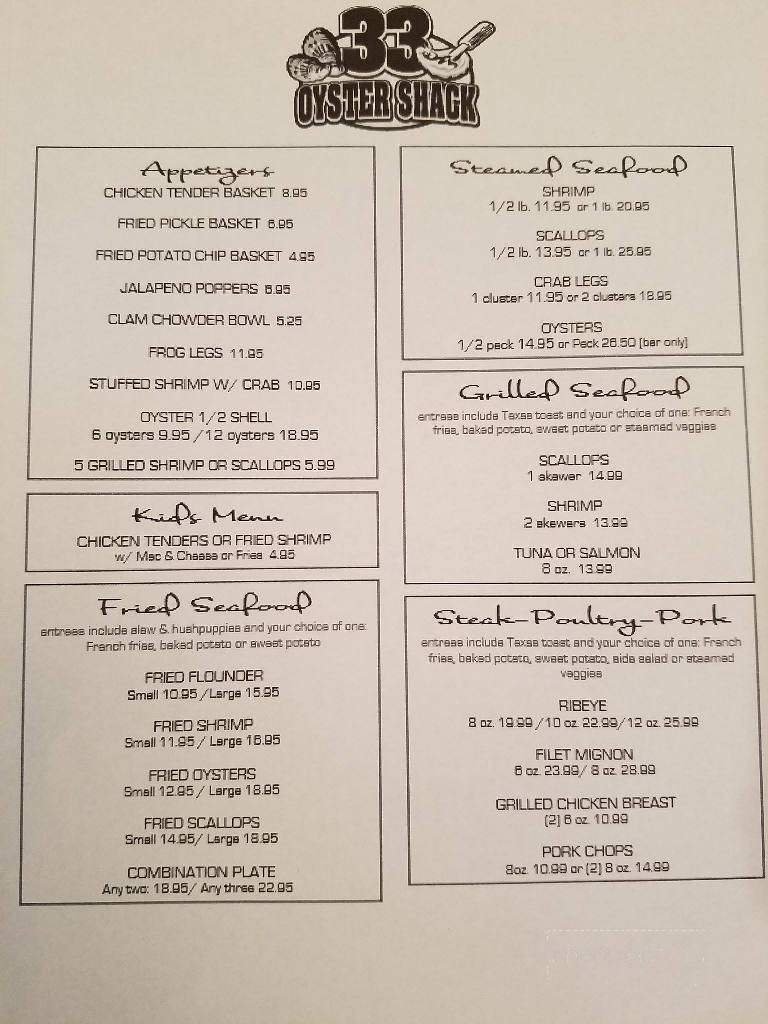 33
OYSTER SHACK
Appetizers
CHICKEN TENDER BASKET 8.95
FRIED PICKLE BASKET 6.95
FRIED POTATO CHIP BASKET 4.95
JALAPENO POPPERS 6.95
CLAM CHOWDER BOWL 5.25
FROG LEGS 11.95
STUFFED SHRIMP W/ CRAB 10.95
OYSTER 1/2 SHELL
6 oysters 9.95 / 12 oysters 18.95
5 GRILLED SHRIMP OR SCALLOPS 5.99
Kid's Menu
CHICKEN TENDERS OR FRIED SHRIMP
w/ Mac & Cheese or Fries 4.95
Fried Seafood
entrees include slaw & hushpuppies and your choice of one:
French fries, baked potato or sweet potato
FRIED FLOUNDER
Small 10.95 / Large 15.95
FRIED SHRIMP
Small 11.95 / Large 16.95
FRIED OYSTERS
Small 12.95 / Large 18.95
FRIED SCALLOPS
Small 14.95/ Large 18.95
COMBINATION PLATE
Any two: 18.95/ Any three 22.95
Steamed Seafood
SHRIMP
1/2 lb. 11.95 or 1 lb. 20.95
SCALLOPS
1/2 lb. 13.95 or 1 lb. 25.95
CRAB LEGS
1 cluster 11.95 or 2 clusters 18.95
OYSTERS
1/2 peck 14.95 or Peck 26.50 (bar only)
Grilled Seafood
entrees include Texas toast and your choice of one: French
fries, baked potato, sweet potato or steamed veggies
SCALLOPS
1 skewer 14.99
SHRIMP
2 skewers 13.99
TUNA OR SALMON
8 oz. 13.99
Steak-Poultry-Pork
entrees include Texas toast and your choice of one: French
fries, baked potato, sweet potato, side salad or steamed
veggies
RIBEYE
8 oz. 19.99 /10 oz. 22.99/12 oz. 25.99
FILET MIGNON
6 oz. 23.99/ 8 oz. 28.99
GRILLED CHICKEN BREAST
(2) 6 oz. 10.99
PORK CHOPS
8oz. 10.99 or (2) 8 oz. 14.99